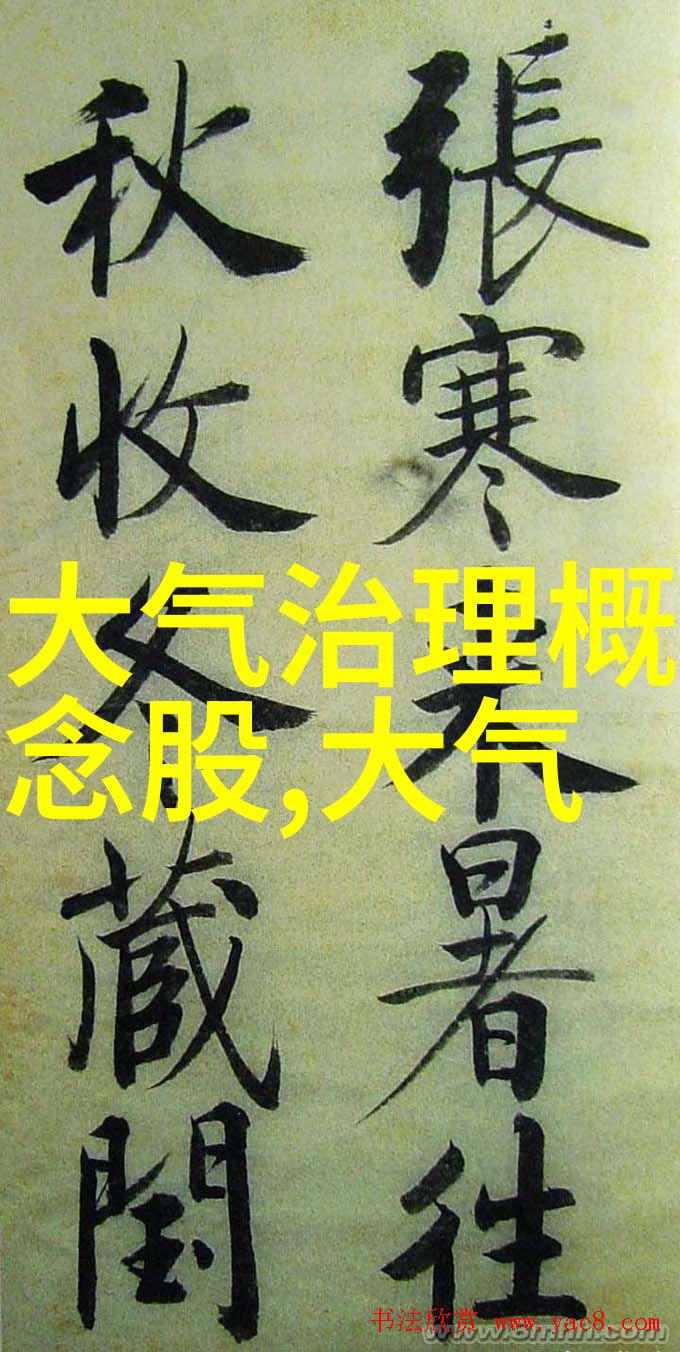 張寒来暑往
秋收冬藏閏
大气治理概
念股,大气
书法欣赏 www.yac8.com